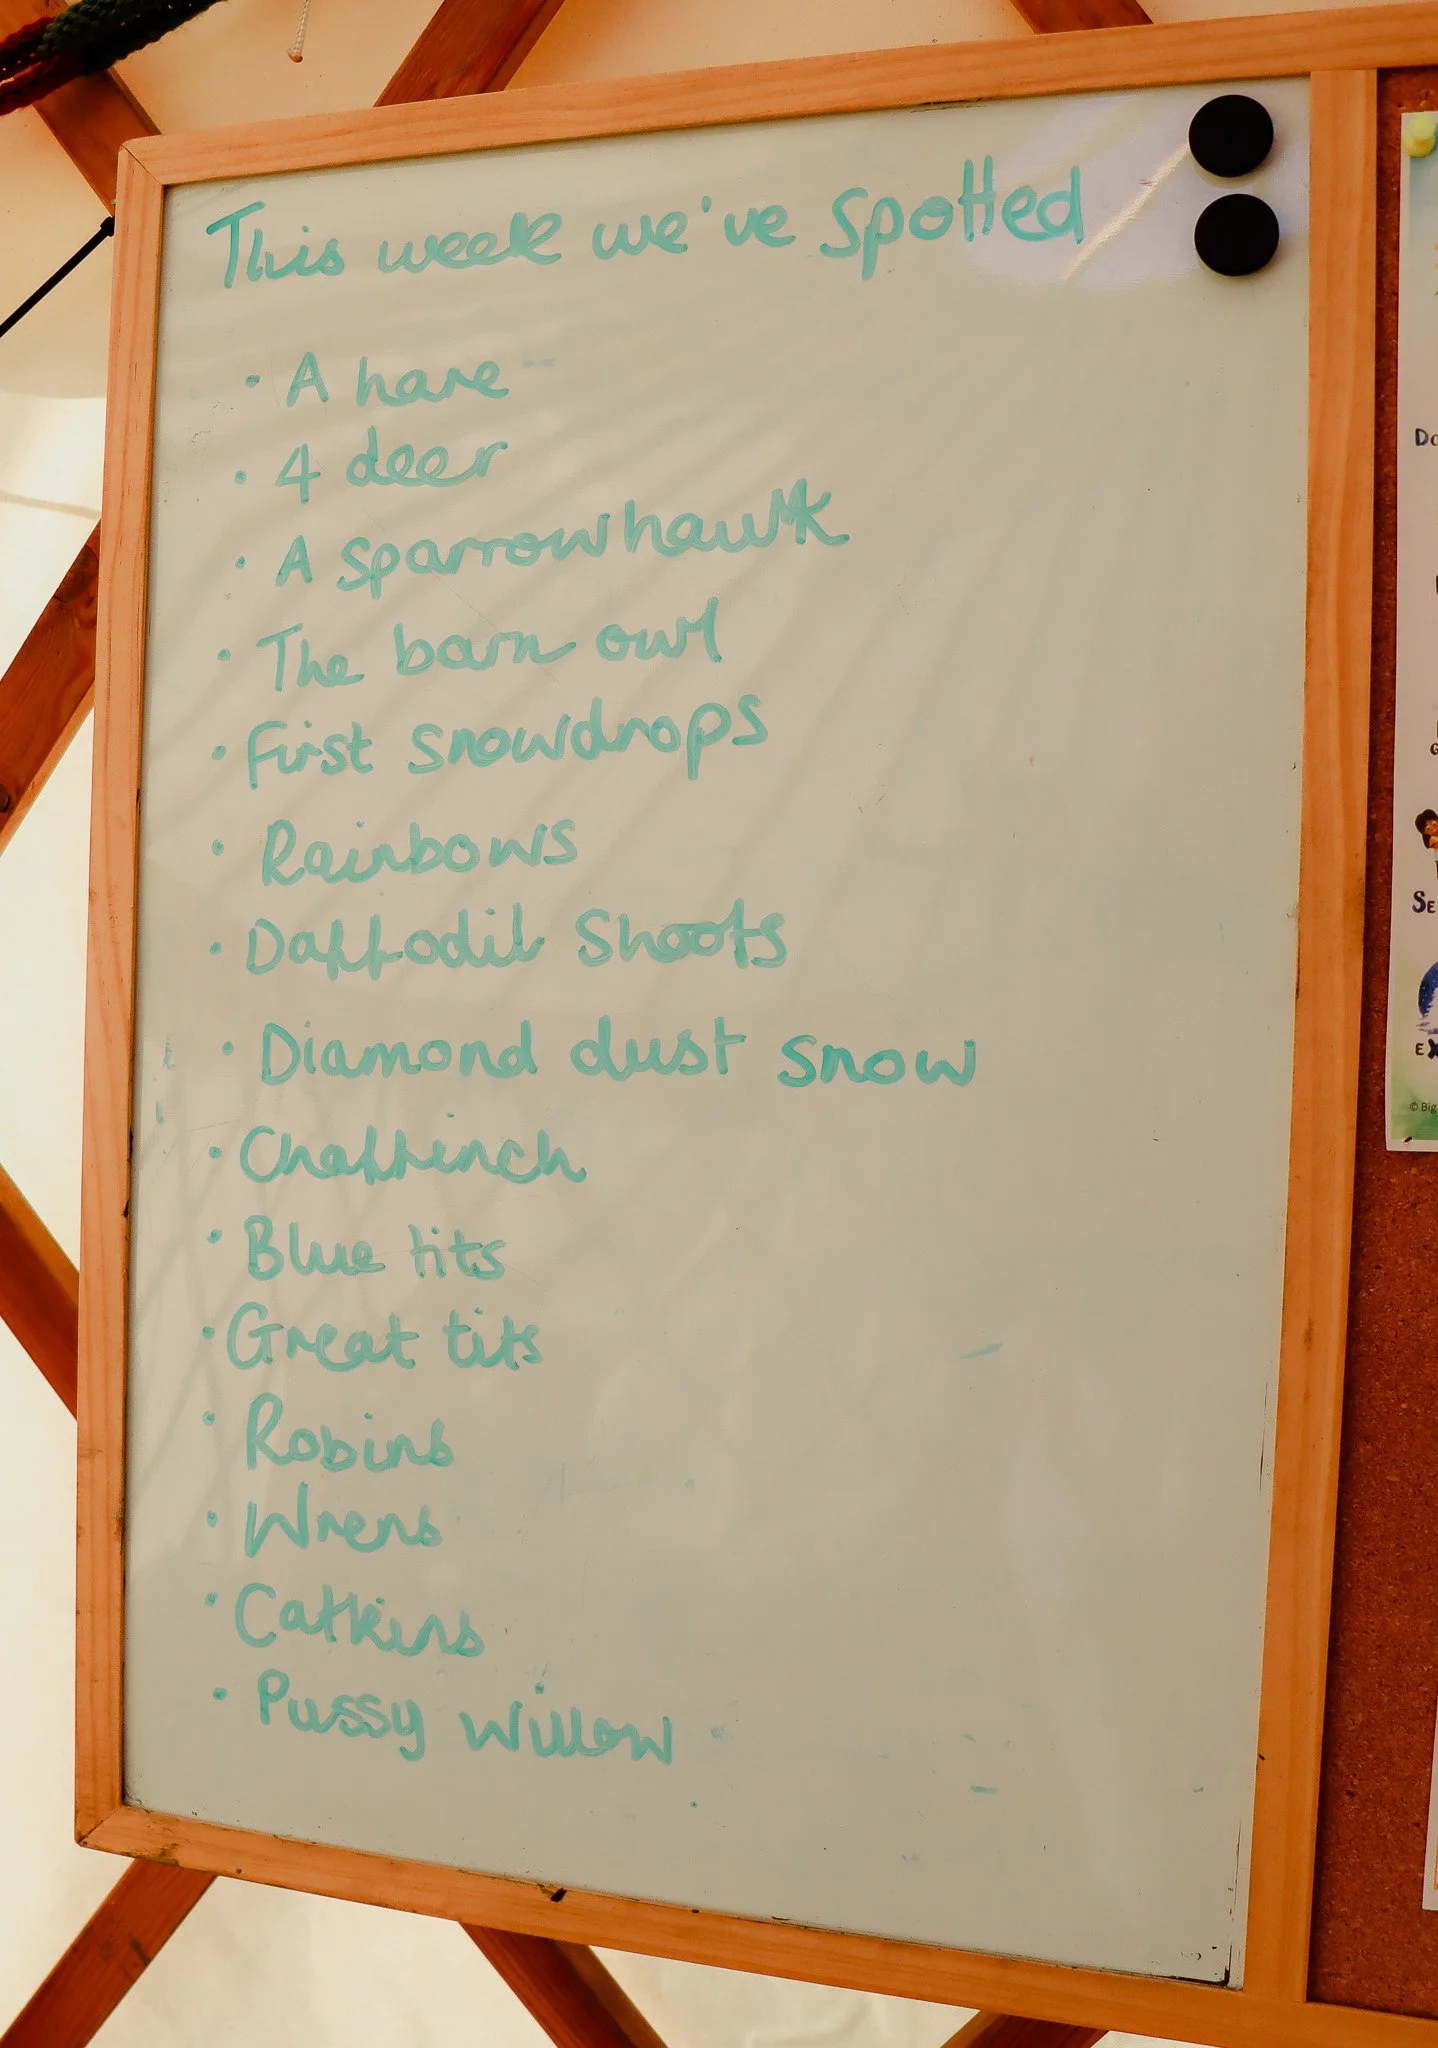 This week we've spotted
• A hare
• 4 deer
• A sparrowhawk
• The barn owl
• First snowdrops
• Rainbows
• Daffodil Shoots
• Diamond dust snow
• Chaffinch
• Blue tits
• Great tits
• Robins
• Wrens
• Catkins
• Pussy willow
Do
SE
EX
© Big